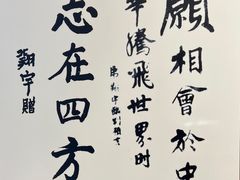 願相會於中
華騰飛世界时
志在四方
翔宇贈